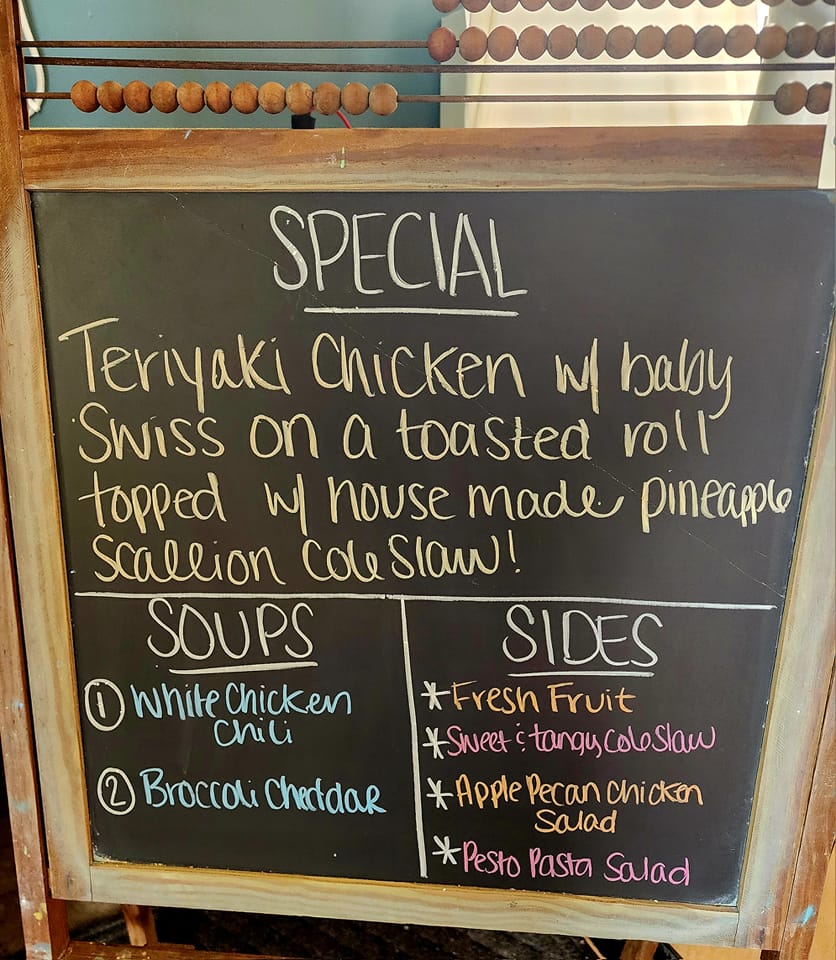 SPECIAL
Teriyaki Chicken w/ baby
Swiss on a toasted roll
topped w/ house made pineapple
Scallion Cole Slaw!
SOUPS
1 White Chicken
Chili
2 Broccoli Cheddar
SIDES
*Fresh Fruit
*Sweet & tangy Cole Slaw
*Apple Pecan Chicken
Salad
*Pesto Pasta Salad